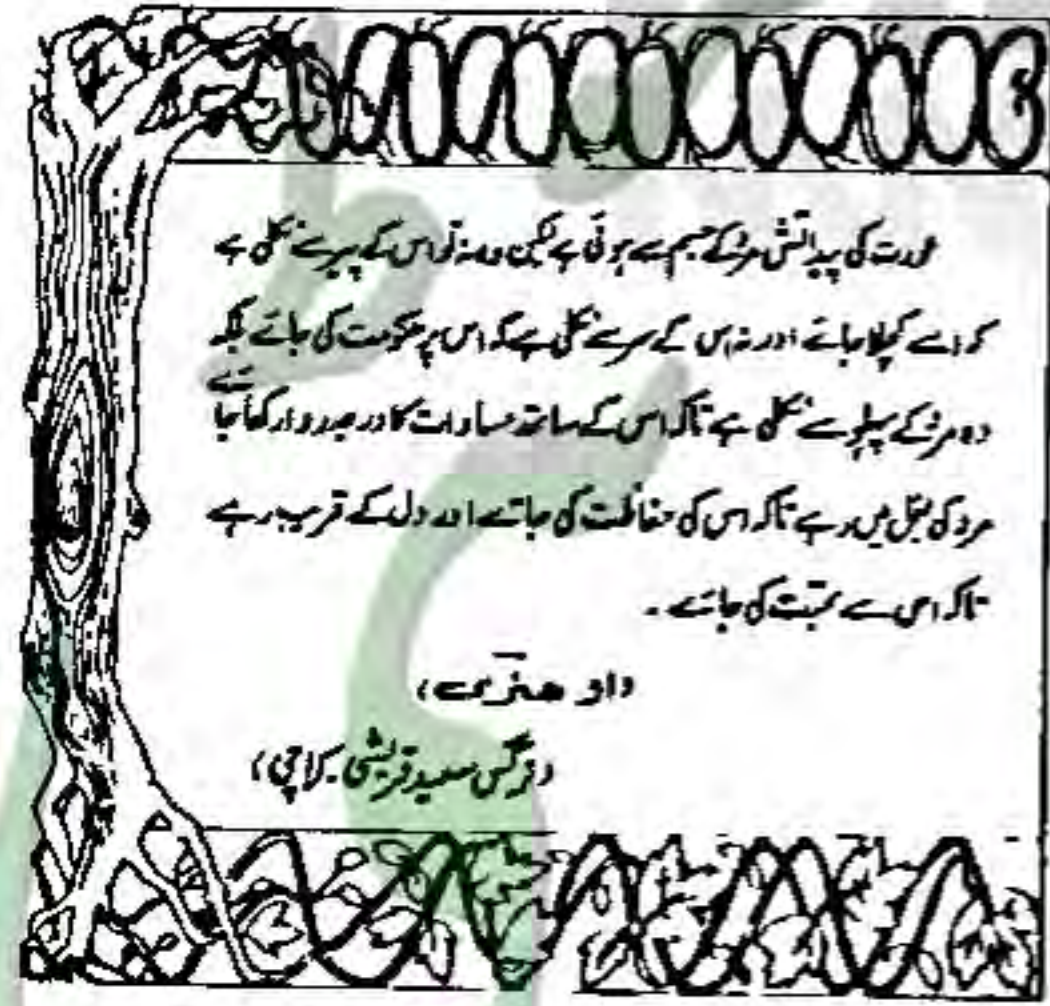 عورت کی پیدائش مرد کے جسم سے ہوئی ہے لیکن وہ نہ تو اس کے پیر سے نکلی ہے
کہ اسے کچلا جائے اور نہ اس کے سر سے نکلی ہے کہ اس پر حکومت کی جائے بلکہ
وہ مرد کے پہلو سے نکلی ہے تاکہ اس کے ساتھ مساوات کا درجہ روا رکھا جائے
مرد کی بغل میں رہے تاکہ اس کی حفاظت کی جائے اور دل کے قریب رہے
تاکہ اس سے محبت کی جائے ۔
(او ہنری)
(نرگس سعید قریشی۔ کراچی)